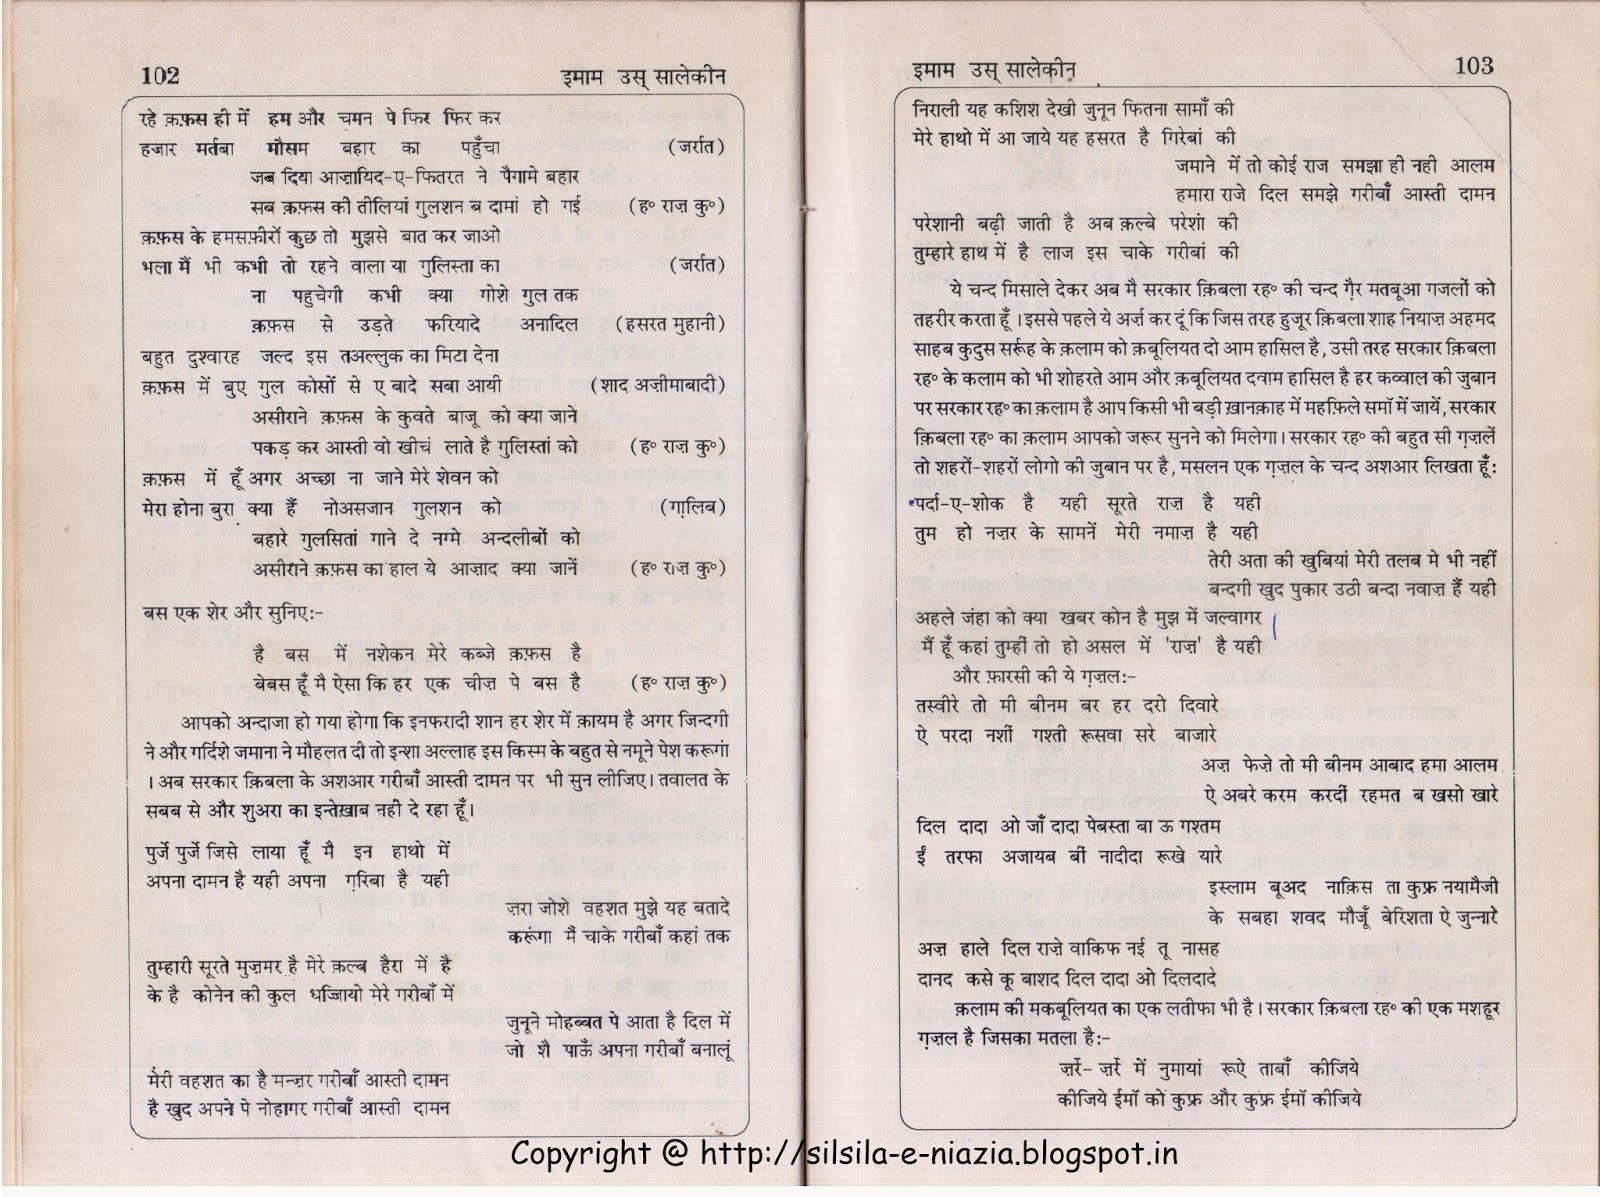 102
इमाम उस् सालेकीन
रहे क़फ़स ही में हम और चमन पे फिर फिर कर
हजार मर्तबा मौसम बहार का पहुँचा (जर्रात)
जब दिया आज़ायिद-ए-फितरत ने पैगामे बहार
सब क़फ़स की तीलियां गुलशन ब दामां हो गई (ह० राज़ कु०)
क़फ़स के हमसफ़ीरों कुछ तो मुझसे बात कर जाओ
भला मैं भी कभी तो रहने वाला या गुलिस्ता का (जर्रात)
ना पहुचेगी कभी क्या गोशे गुल तक
क़फ़स से उड़ते फरियादे अनादिल (हसरत मुहानी)
बहुत दुश्वारह जल्द इस तअल्लुक का मिटा देना
क़फ़स में बुए गुल कोसों से ए बादे सबा आयी (शाद अज़ीमाबादी)
असीराने क़फ़स के कुवते बाजू को क्या जाने
पकड़ कर आस्ती वो खीचं लाते है गुलिस्तां को (ह० राज़ कु०)
क़फ़स में हूँ अगर अच्छा ना जाने मेरे शेवन को
मेरा होना बुरा क्या हैं नोअसजान गुलशन को (ग़ालिब)
बहारे गुलसितां गाने दे नग्मे अन्दलीबों को
असीराने क़फ़स का हाल ये आज़ाद क्या जानें (ह० राज़ कु०)
बस एक शेर और सुनिए:-
है बस में नशेकन मेरे कब्जे क़फ़स है
बेबस हूँ मै ऐसा कि हर एक चीज़ पे बस है (ह० राज़ कु०)
आपको अन्दाजा हो गया होगा कि इनफरादी शान हर शेर में क़ायम है अगर जिन्दगी
ने और गर्दिशे जमाना ने मौहलत दी तो इन्शा अल्लाह इस किस्म के बहुत से नमूने पेश करूगां
। अब सरकार क़िबला के अशआर गरीबाँ आस्ती दामन पर भी सुन लीजिए। तवालत के
सबब से और शुअरा का इन्तेख़ाब नही दे रहा हूँ।
पुर्जे पुर्जे जिसे लाया हूँ मै इन हाथो में
अपना दामन है यही अपना ग़रिबा है यही
ज़रा जोशे वहशत मुझे यह बतादे
करूंगा मैं चाके गरीबाँ कहां तक
तुम्हारी सूरते मुज़मर है मेरे क़ल्ब हैरा में है
के है कोनेन की कुल धज्जियो मेरे गरीबाँ में
जुनूने मोहब्बत पे आता है दिल में
जो शै पाऊँ अपना गरीबाँ बनालूं
मेरी वहशत का है मन्ज़र गरीबाँ आस्ती दामन
है खुद अपने पे नोहागर गरीबाँ आस्ती दामन
इमाम उस् सालेकीन
103
निराली यह कशिश देखी जुनून फितना सामाँ की
मेरे हाथो में आ जाये यह हसरत है गिरेबां की
जमाने में तो कोई राज समझा ही नही आलम
हमारा राजे दिल समझे गरीबाँ आस्ती दामन
परेशानी बढ़ी जाती है अब क़ल्बे परेशां की
तुम्हारे हाथ में है लाज इस चाके गरीबां की
ये चन्द मिसाले देकर अब मै सरकार क़िबला रह० की चन्द ग़ैर मतबूआ गज़लों को
तहरीर करता हूँ । इससे पहले ये अर्ज़ कर दूं कि जिस तरह हुजूर क़िबला शाह नियाज़ अहमद
साहब कुदुस सर्रूह के क़लाम को क़बूलियत दो आम हासिल है, उसी तरह सरकार क़िबला
रह० के कलाम को भी शोहरते आम और क़बूलियत दवाम हासिल है हर कव्वाल की जुबान
पर सरकार रह० का क़लाम है आप किसी भी बड़ी ख़ानक़ाह में महफ़िले समाँ में जायें, सरकार
क़िबला रह० का क़लाम आपको जरूर सुनने को मिलेगा। सरकार रह० की बहुत सी ग़ज़लें
तो शहरों-शहरों लोगो की जुबान पर है, मसलन एक ग़ज़ल के चन्द अशआर लिखता हूँ:
पर्दा-ए-शोक है यही सूरते राज़ है यही
तुम हो नज़र के सामनें मेरी नमाज़ है यही
तेरी अता की खुबियां मेरी तलब मे भी नहीं
बन्दगी खुद पुकार उठी बन्दा नवाज़ हैं यही
अहले जंहा को क्या खबर कोन है मुझ में जल्वागर
मैं हूँ कहां तुम्हीं तो हो असल में 'राज़' है यही
और फ़ारसी की ये ग़ज़ल:-
तस्वीरे तो मी बीनम बर हर दरो दिवारे
ऐ परदा नशीं गश्ती रूसवा सरे बाजारे
अज़ फेज़े तो मी बीनम आबाद हमा आलम
ऐ अबरे करम करदीं रहमत ब खसो खारे
दिल दादा ओ जाँ दादा पेबस्ता बा ऊ गश्तम
ईं तरफा अजायब बीं नादीदा रूखे यारे
इस्लाम बूअद नाक़िस ता कुफ़्र नयामैजी
के सबहा शवद मौजूँ बेरिशता ऐ जुन्नारे
अज़ हाले दिल राज़े वाकिफ नई तू नासह
दानद कसे कू बाशद दिल दादा ओ दिलदादे
क़लाम की मकबूलियत का एक लतीफा भी है। सरकार क़िबला रह० की एक मशहूर
ग़ज़ल है जिसका मतला है:-
ज़र्रे- ज़र्रे में नुमायां रूऐ ताबाँ कीजिये
कीजिये ईमाँ को कुफ़्र और कुफ़्र ईमाँ कीजिये
Copyright @ http://silsila-e-niazia.blogspot.in